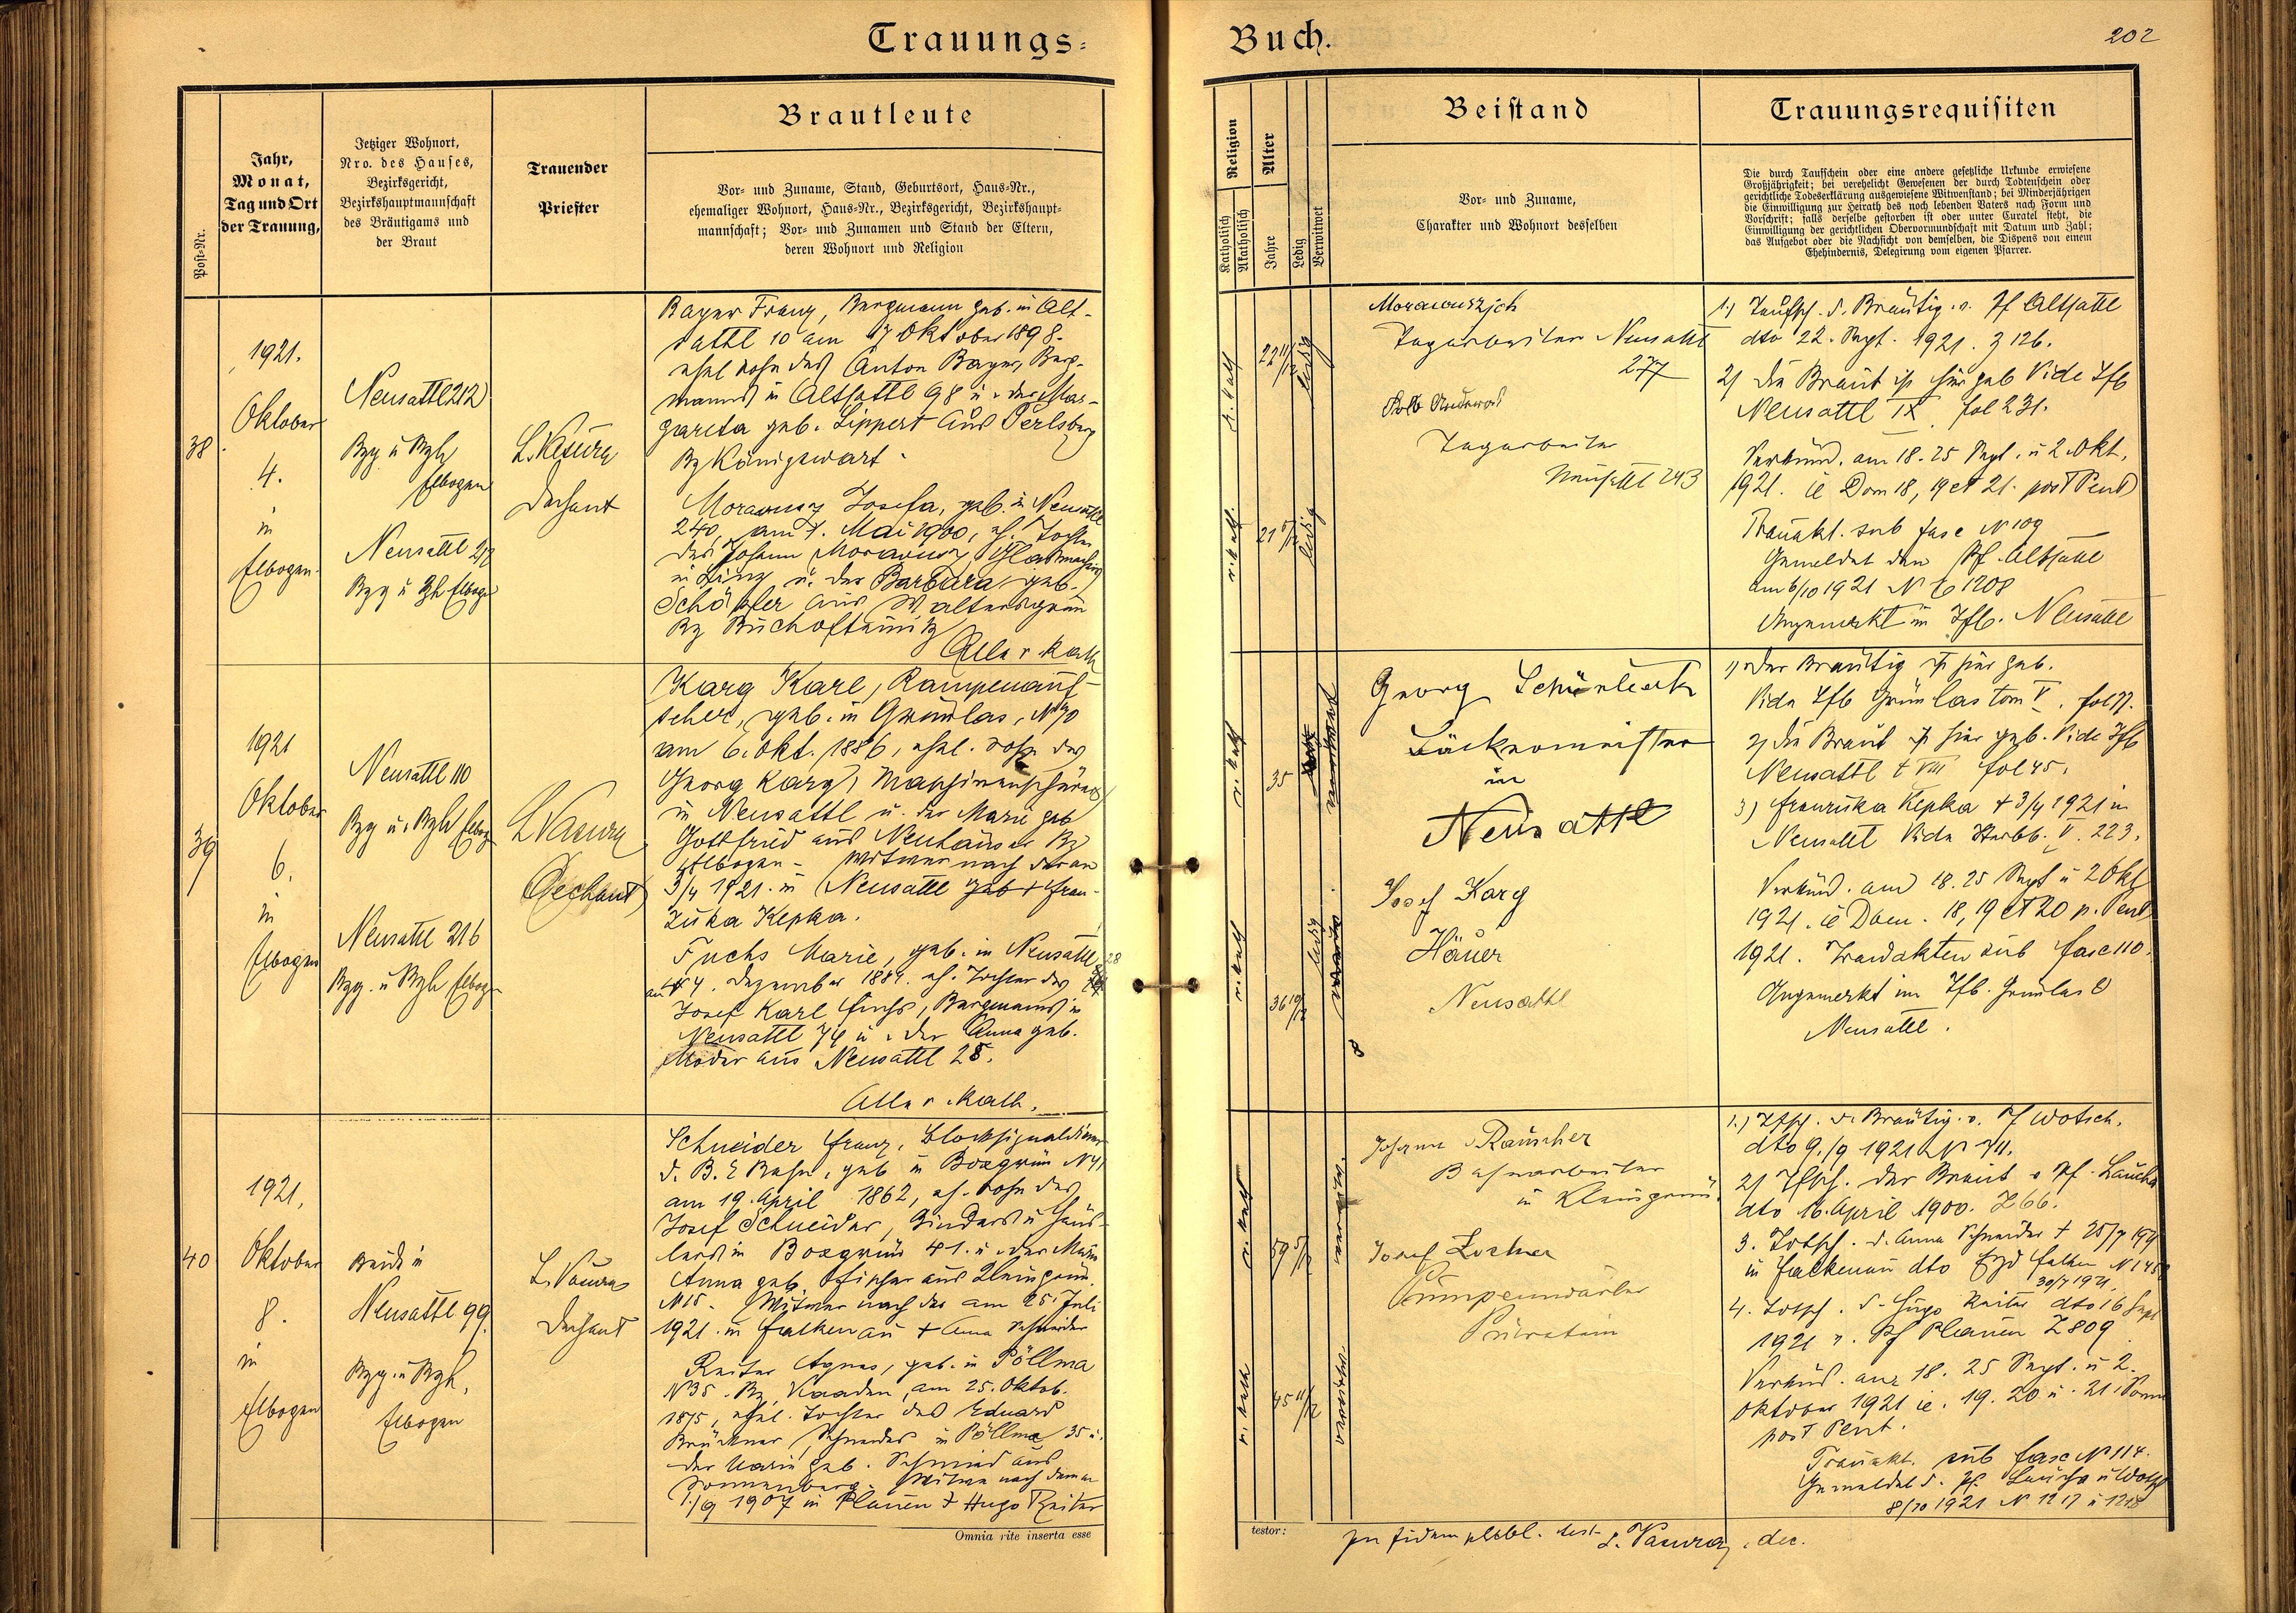 Trauungs-
Buch.
202
Post-Nr.
Jahr,
Monat,
Tag und Ort
der Trauung,
Jetziger Wohnort,
Nro. des Hauses,
Bezirksgericht,
Bezirkshauptmannschaft
des Bräutigams und
der Braut
Trauender
Priester
Brautleute
Vor- und Zuname, Stand, Geburtsort, Haus-Nr.,
ehemaliger Wohnort, Haus-Nr., Bezirksgericht, Bezirkshaupt-
mannschaft; Vor- und Zunamen und Stand der Eltern,
deren Wohnort und Religion
Religion
Katholisch
Akatholisch
Alter
Jahre
Ledig
Verwitwet
Beistand
Vor- und Zuname,
Charakter und Wohnort desselben
Trauungsrequisiten
Die durch Taufschein oder eine andere gesetzliche Urkunde erwiesene
Großjährigkeit; bei verehelicht Gewesenen der durch Todtenschein oder
gerichtliche Todeserklärung ausgewiesene Witwenstand; bei Minderjährigen
die Einwilligung zur Heirath des noch lebenden Vaters nach Form und
Vorschrift; falls derselbe gestorben ist oder unter Curatel steht, die
Einwilligung der gerichtlichen Obervormundschaft mit Datum und Zahl;
das Aufgebot oder die Nachsicht von demselben, die Dispens von einem
Ehehindernis, Delegirung vom eigenen Pfarrer.
38
1921.
Oktober
4.
in
Elbogen.
Neusattl 212
Bzg u Bzh
Elbogen
Neusattl 212
Bzg u Bzh Elbogen
L. Vasura
Dechant
Bayer Franz, Bergmann geb. in Alt-
sattl 10 am 17 Oktober 1898.
ehel Sohn des Anton Bayer, Berg-
manns in Altsattl 98 u. der Mar-
gareta geb. Lippert aus Perlsberg
Bz Königswart.
Morawusz Josefa, geb. in Neusattl
240, am 7. Mai 1900, eh. Tochter
des Johann Morawusz
in u. der Barbara geb.
Schöpfer aus Waltersgrün
Bz Buchoftainitz
Alle r. kath
r. kath
22 11/12
ledig
r. kath.
21 5/12
ledig
Tagarbeiter Neusattl
277
Kolb
Tagarbeiter
Neusattl 243
1.) Taufsch. d. Bräutig. v. Pf Altsattl
dto 22. Sept. 1921. Z 126.
2) Die Braut ist hier geb Vide Tfb
Neusattl IX fol 231.
Verkünd. am 18. 25 Sept. u 2. Okt.
1921. ie Dom 18, 19 et 21. post Pent
Trauakt. sub fasc N 109
Gemeldet dem Pf. Altsattl
am 6/10 1921 N E 1208
Angemerkt im Tfb. Neusattl
39
1921
Oktober
6.
in
Elbogen
Neusattl 110
Bzg u. Bzh Elbog
Neusattl 216
Bzg. u Bzh Elbog
L Vasura
Dechant
Karg Karl, Rampenauf-
seher, geb. in Grünlas, N 70
am 6. Okt. 1886, ehel. Sohn des
Georg Karg, Maschinenschürers
in Neusattl u. der Marie geb
Gottfried aus Neuhäuser Bz
Elbogen - Witwer nach der am
3/4 1921. in Neusattl geb + Fran-
ziska Kepka.
Fuchs Marie, geb. in Neusattl 28
am 4. Dezember 1884. eh. Tochter des
Josef Karl Fuchs, Bergmanns in
Neusattl 74 u. der Anna geb.
Moder aus Neusattl 28.
Alle r. kath.
r. kath
35
verwitwet
r. kath
36 10/12
ledig
8
Georg
Bäckermeister
in
Neusattl
Josef Karg
Häuer
Neusattl
1) Der Bräutig ist hier geb.
Vide Tfb Grünlas tom V. fol 77.
2) Die Braut ist hier geb. Vide Tfb
Neusattl t VIII fol 45.
3) Franziska Kepka + 3/4 1921 in
Neusattl Vide Sterbb. V. 223.
Verkünd. am 18. 25 Sept u 2 Okt
1921. ie Dom. 18, 19 et 20 p. Pent
1921. Trauakten sub fasc 110.
Angemerkt im Tfb. Grünlas u
Neusattl.
40
1921,
Oktober
8.
in
Elbogen
Beide in
Neusattl 99.
Bzg. u Bzh,
Elbogen
L. Vasura
Dechant
Schneider Franz, Blocksignaldiener
d. B. E Bahn, geb in Boxgrün N 41
am 19. April 1862, eh. Sohn des
Josef Schneider, Binders u Häus-
lers in Boxgrün 41. u. der Marie
Anna geb. Fischer aus Kleingrün.
N 15. Witwer nach der am 25. Juli
1921. in Falkenau + Anna Schneider
Reiter Agnes, geb. in Pöllma
N 35. Bz Kaaden, am 25. Oktob.
1875, ehel. Tochter des Eduard
Brückner, Schneider in Pöllma 35 u.
der Marie geb. Schmied aus
Sonnenberg. Witwe nach dem am
1./9 1907 in Plauen + Hugo Reiter
r. kath
59 5/12
verwitw.
r. kath
45 11/12
verwitwet.
Johann Rauscher
Bahnarbeiter
in Kleingrün
Josef Lorenz
Pumpenwärter
1.) Tfsch. d. Bräutig. v. Pf Wotsch.
dto 9./9 1921 N 711.
2) Tfsch. der Braut v Pf. Laucha
dto 16. April 1900. Z 66.
3. Totsch. d. Anna Schneider + 25/7 1921
in Falkenau dto Falken N 145
30/7 1921.
4. Totsch. d. Hugo Reiter dto 16 Sept
1921 v. Pf Plauen Z 809
Verkünd. am 18. 25 Sept. u 2.
Oktober 1921 ie. 19. 20 u. 21. Sonn
post Pent.
Trauakt. sub fasc N 114.
Gemeldet d. Pf. Laucha u Wotsch
8/10 1921 N 1217 u 1218
Omnia rite inserta esse
testor:
L. Vasura, dec.